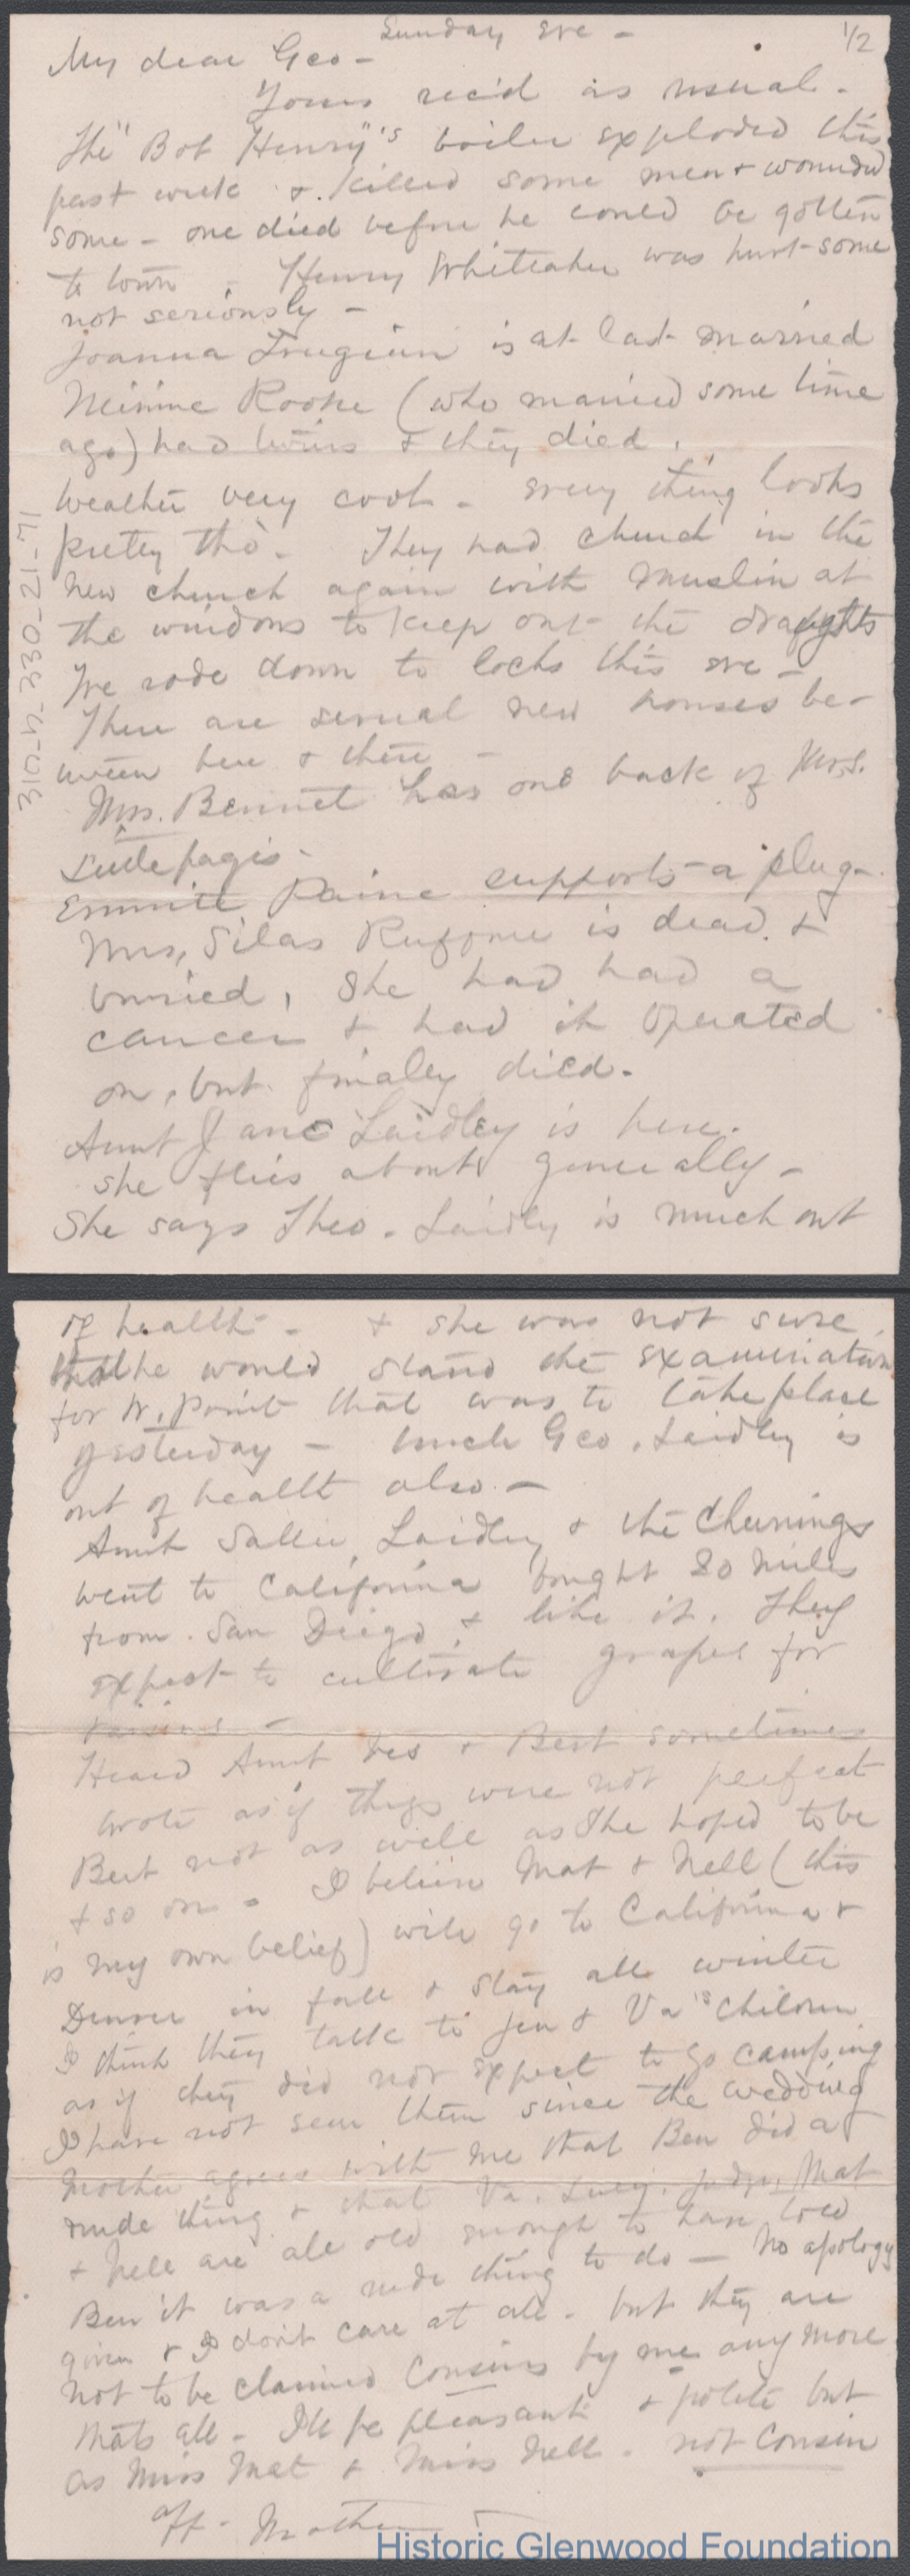 Sunday eve -
1/2
My dear Geo -
Yours rec'd as usual -
The "Bob Henry"'s boiler exploded this
past week & killed some men & wounded
some - one died before he could be gotten
to town - Henry Whiteaker was hurt some
not seriously -
Joanna is at last married
Minnie Rooke (who married some time
ago) had twins & they died.
Weather very cool - every thing looks
pretty tho'- They had church in the
new church again with muslin at
the windows to keep out the draughts
We rode down to locks this eve -
There are several new houses be-
tween here & there -
Mrs. Bennet has one back of Mrs.
Littlepages -
Emmitt Paine supports a plug -
Mrs, Silas Ruffner is dead &
buried, she had had a
cancer & had it operated
on, but finaley died.
Aunt Jane Laidley is here.
she flies about generally -
She says Theo. Laidley is much out
of health - & she was not sure
that he would stand the examination
for W. Point that was to take place
yesterday - Uncle Geo. Laidley is
out of health also -
Aunt Sallie Laidley & the
went to California bought 20 miles
from San Diego & like it. They
expect to cultivate grapes for
raisins -
Heard Aunt & Bert sometimes
wrote as if things were not perfect
Bert not as well as she hoped to be
& so on - I believe Mat & Nell (this
is my own belief) will go to California &
Denver in fall & stay all winter
I think they talk to Jen & Va's children
as if they did not expect to go camping
I have not seen them since the wedding
Mother agrees with me that Ben did a
rude thing & that Va. Lucy, Judge, Mat
& Nell are all old enough to have told
Ben it was a rude thing to do - No apology
given & I don't care at all - but they are
not to be claimed Cousins by me any more
thats all - I'll be pleasant & polite but
as Miss Mat & Miss Nell - not Cousin
Aff - Mother
310_h_330_21_71
Historic Glenwood Foundation